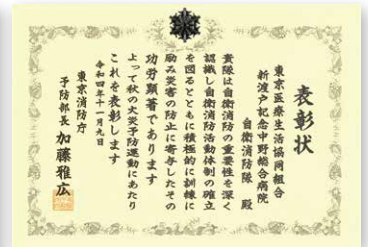 表彰状
東京医療生活協同組合
新渡戸記念中野総合病院
自衛消防隊 殿
貴隊は自衛消防の重要性を深く
認識し自衛消防活動体制の確立
を図るとともに積極的に訓練に
励み災害の防止に寄与したその
功労顕著であります
よって秋の火災予防運動にあたり
これを表彰します
令和四年十一月九日
東京消防庁
予防部長 加藤雅広